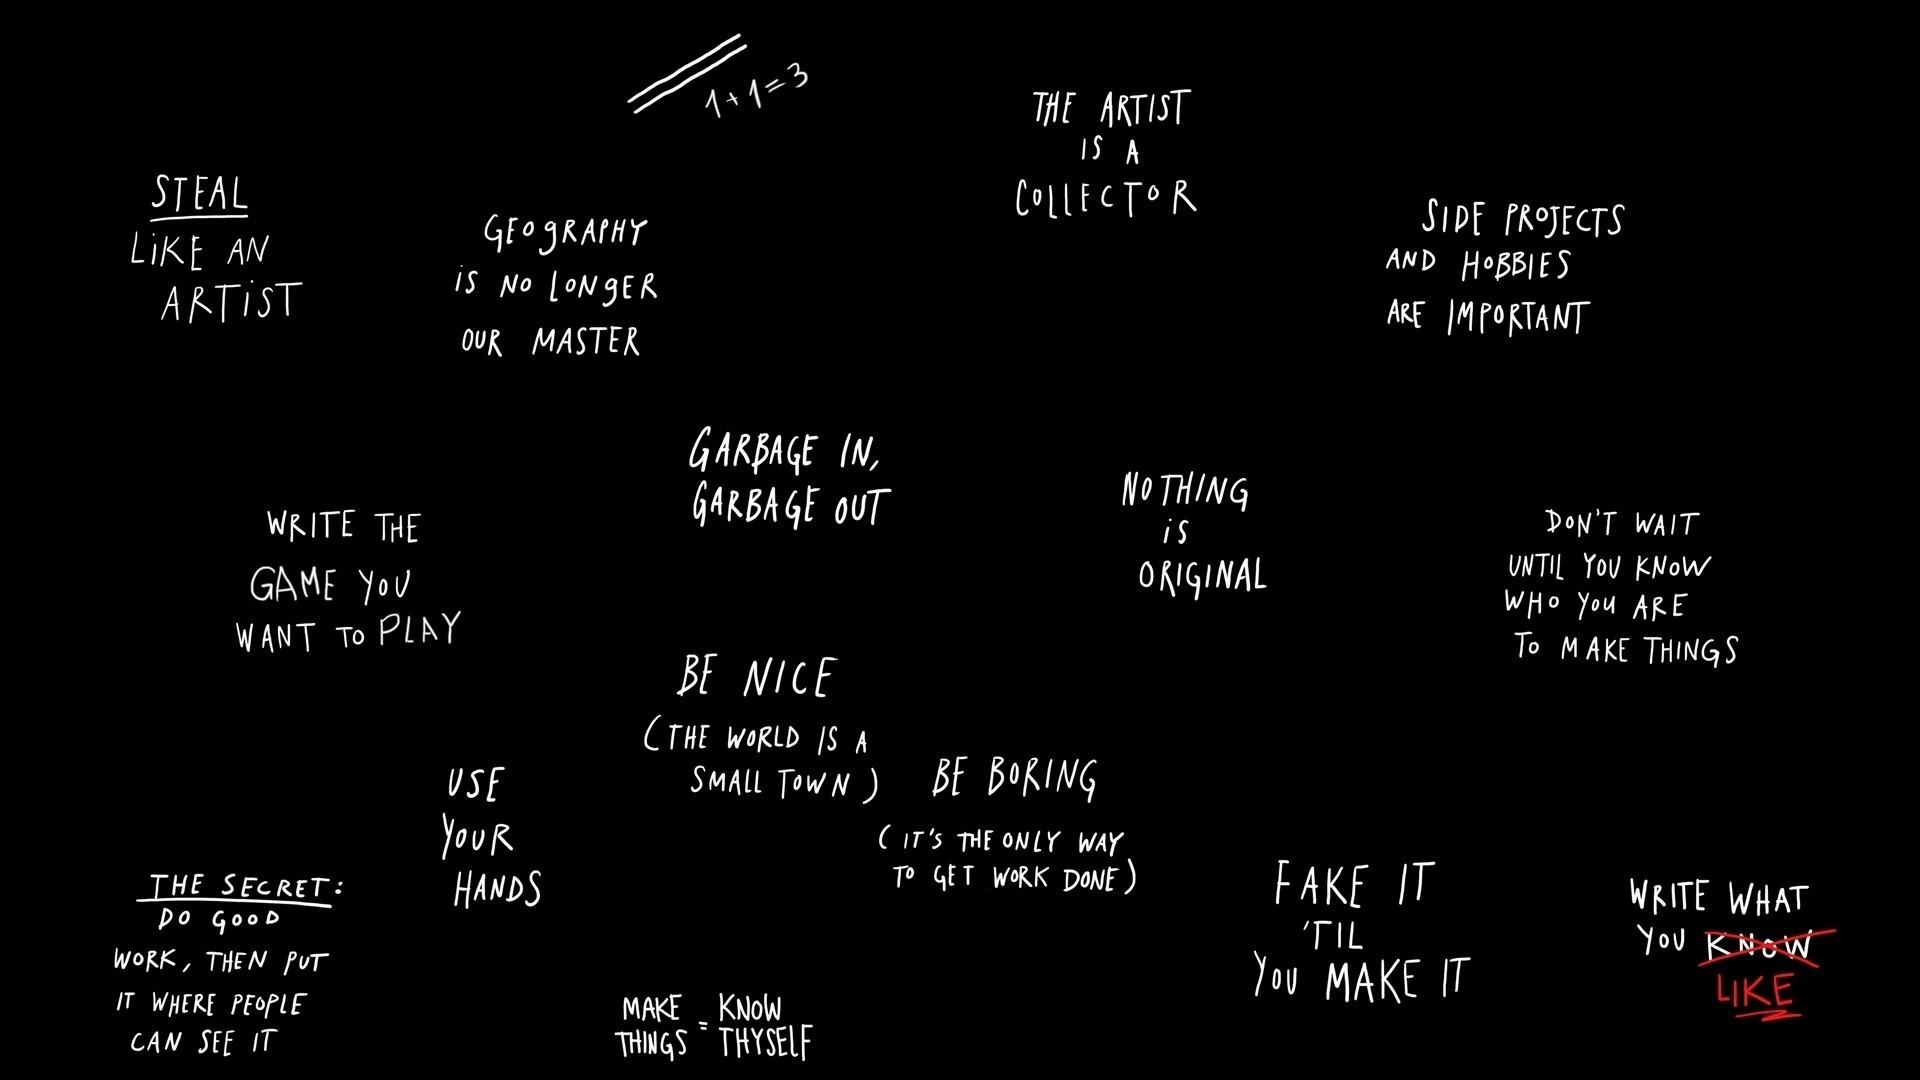 1+1=3
THE ARTIST
IS A
COLLECTOR
STEAL
LIKE AN
ARTIST
GEOGRAPHY
IS NO LONGER
OUR MASTER
SIDE PROJECTS
AND HOBBIES
ARE IMPORTANT
GARBAGE IN,
GARBAGE OUT
NOTHING
IS
ORIGINAL
WRITE THE
GAME YOU
WANT TO PLAY
DON'T WAIT
UNTIL YOU KNOW
WHO YOU ARE
TO MAKE THINGS
BE NICE
(THE WORLD IS A
SMALL TOWN)
BE BORING
(IT'S THE ONLY WAY
TO GET WORK DONE)
USE
YOUR
HANDS
THE SECRET:
DO GOOD
WORK, THEN PUT
IT WHERE PEOPLE
CAN SEE IT
FAKE IT
'TIL
YOU MAKE IT
WRITE WHAT
YOU KNOW
LIKE
MAKE THINGS = KNOW THYSELF